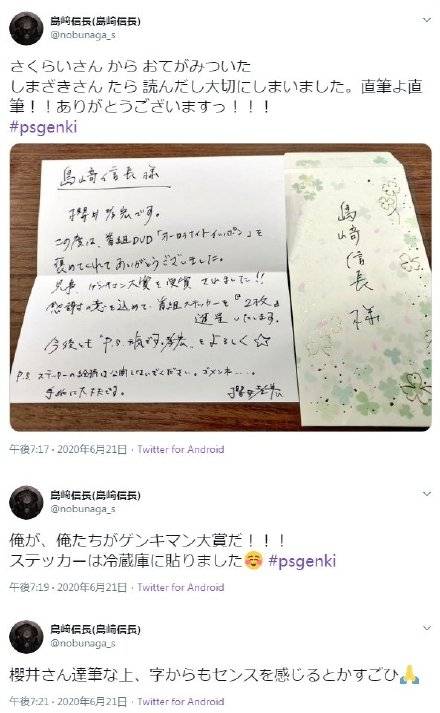 島﨑信長(島﨑信長)
@nobunaga_s
さくらいさん から おてがみついた
しまざきさん たら 読んだし大切にしまいました。直筆よ直
筆！！ありがとうございますっ！！！
#psgenki
島﨑信長 様
櫻井孝宏です。
この度は、番組DVD を
褒めてくれてありがとうございました。
見事 ゲンキマン大賞を受賞 されました!!
感謝の意を込めて、番組ステッカーを『2枚』
進呈 いたします。
今後とも "P.S. 元気です。孝宏" をよろしく☆
P.S ステッカーの絵柄は公開しないでください。ゴメンネ....。
手紙は大丈夫です。 櫻井孝宏
島﨑信長 様
午後7:17 · 2020年6月21日 · Twitter for Android
島﨑信長(島﨑信長)
@nobunaga_s
俺が、俺たちがゲンキマン大賞だ！！！
ステッカーは冷蔵庫に貼りました☺️ #psgenki
午後7:19 · 2020年6月21日 · Twitter for Android
島﨑信長(島﨑信長)
@nobunaga_s
櫻井さん達筆な上、字からもセンスを感じるとかすごひ🙏
午後7:21 · 2020年6月21日 · Twitter for Android